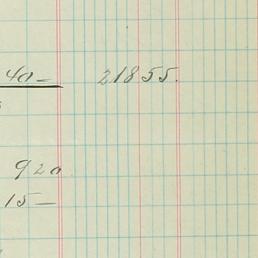 40- 21855.
920
15-